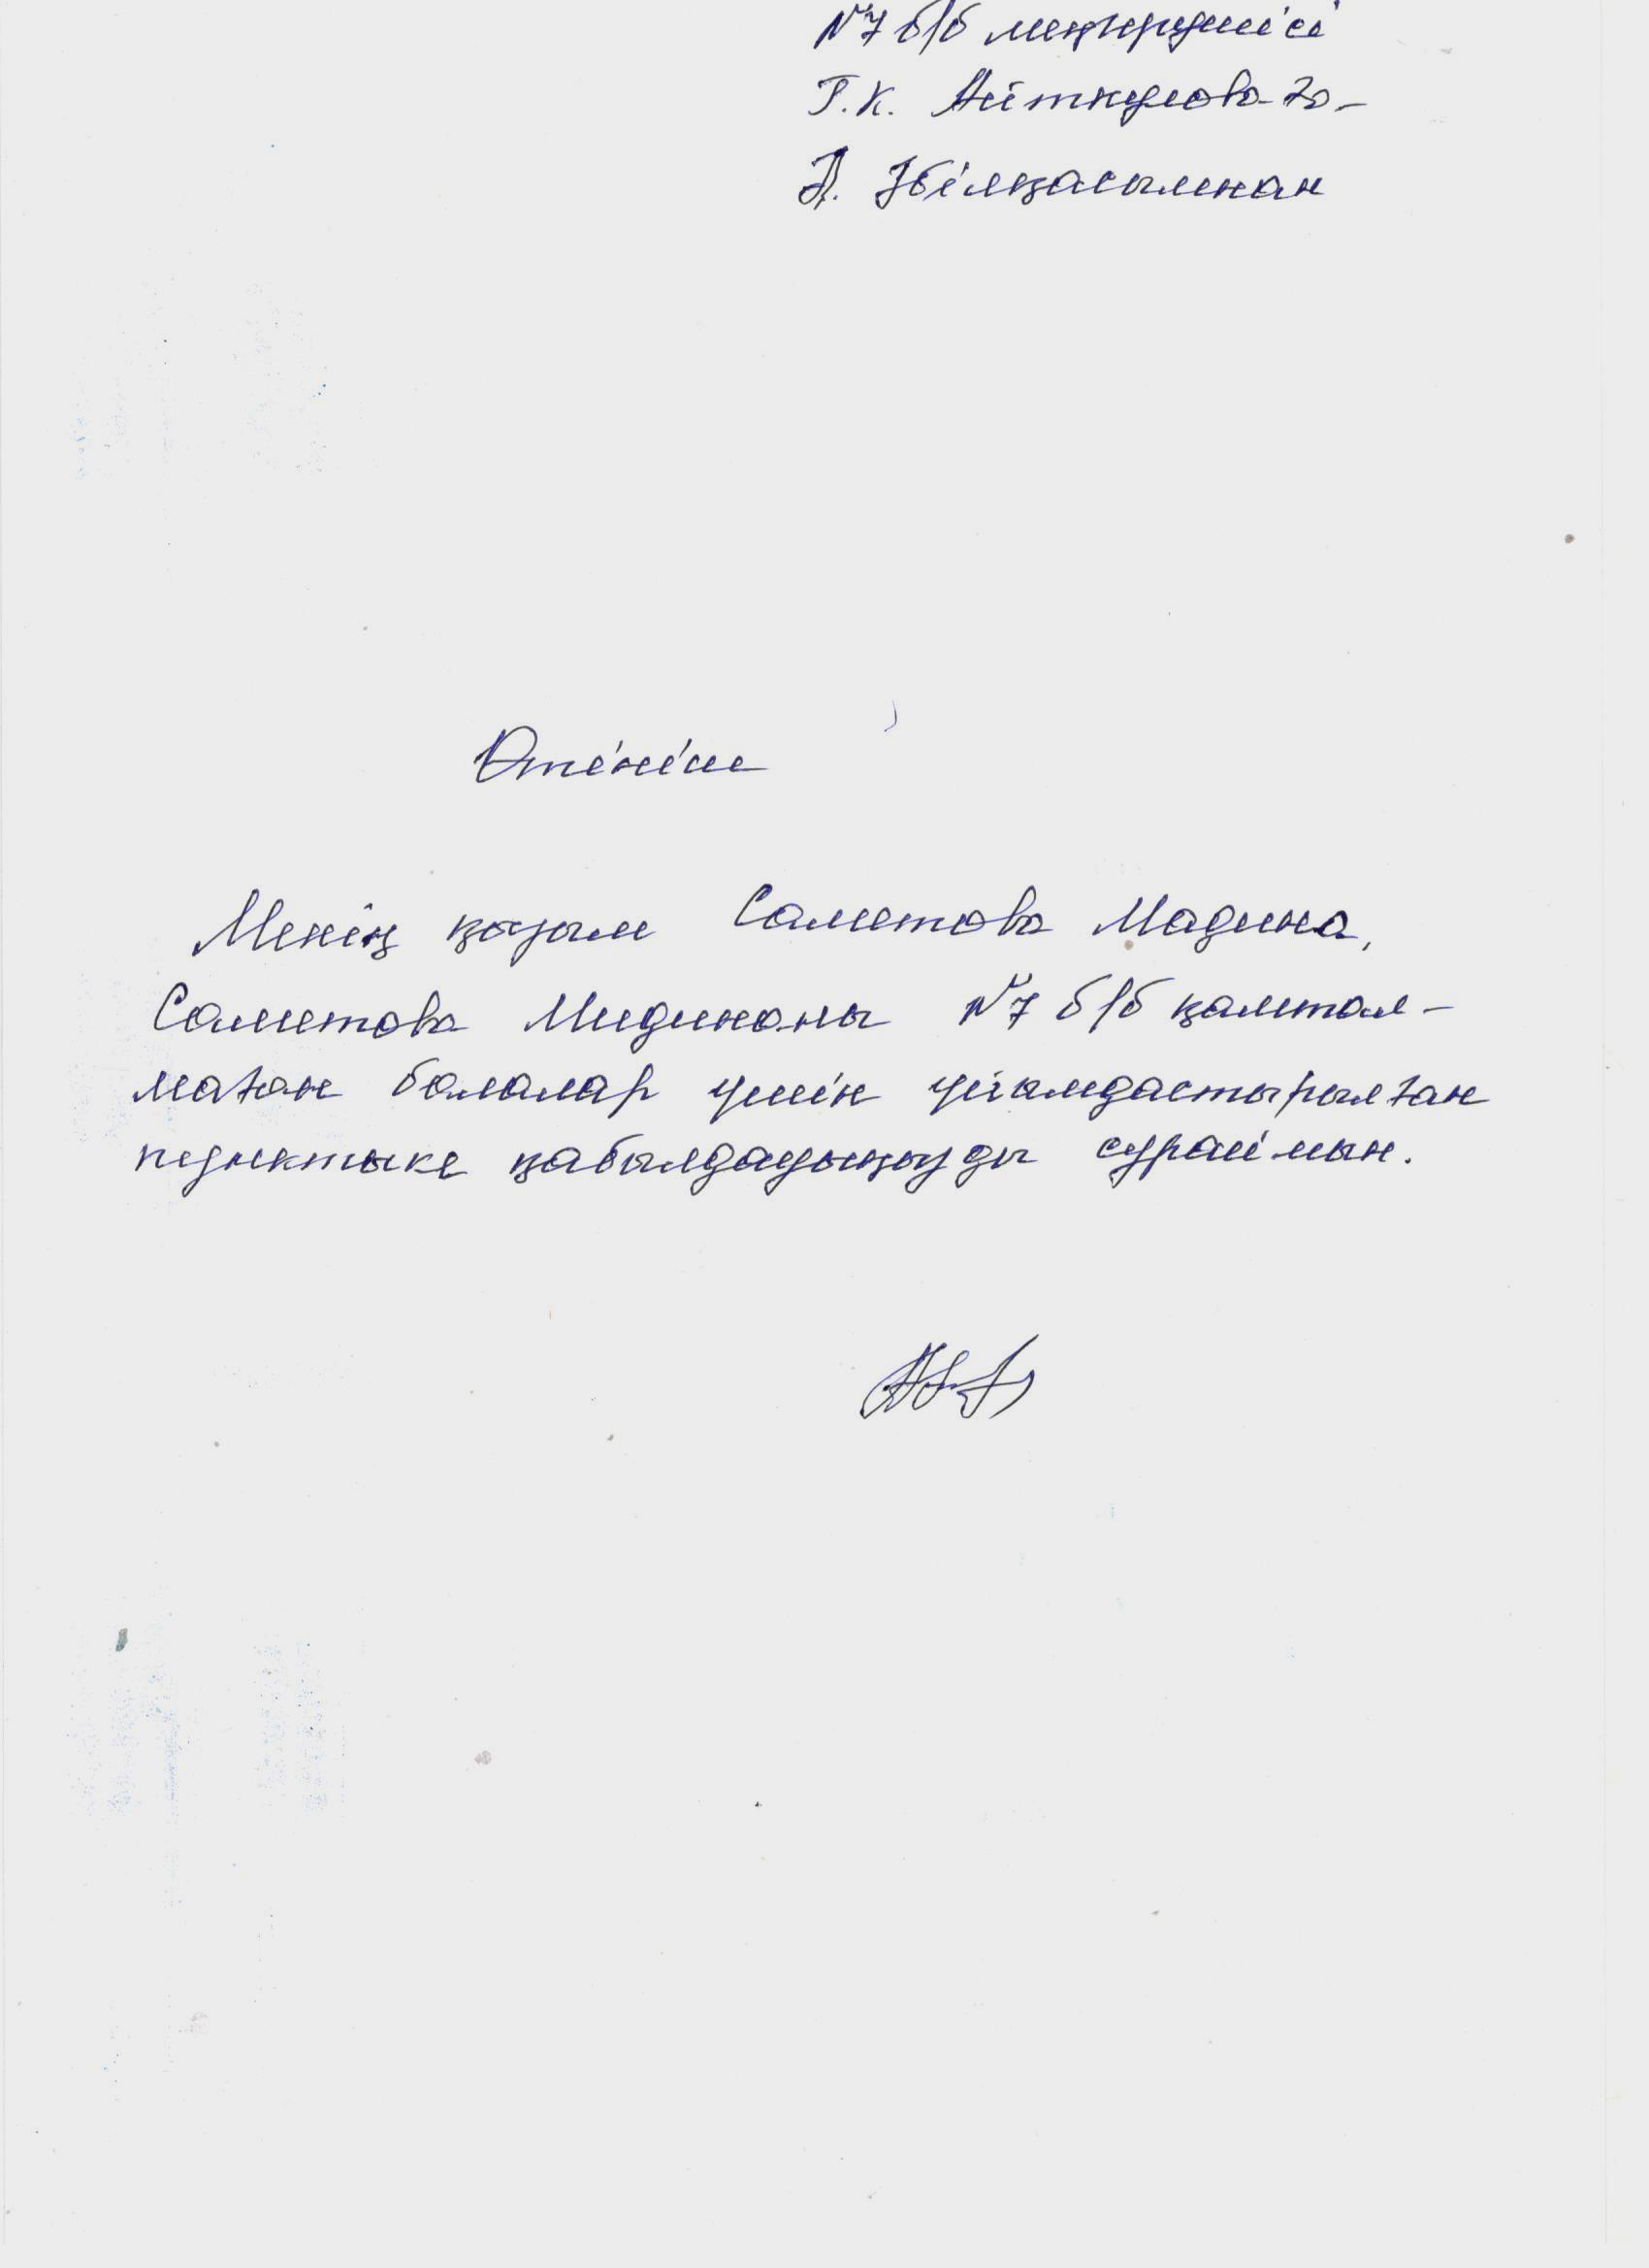 №7 б/б меңгерушісі
Г.К. Айткулова-ға
А. Әбілқасымнан
Өтініш
Менің қызым Саметова Мадина,
Саметова Мидинаны №7 б/б қамтал-
маған балалар үшін ұйымдастырылған
қабылдауыңызды сұраймын.